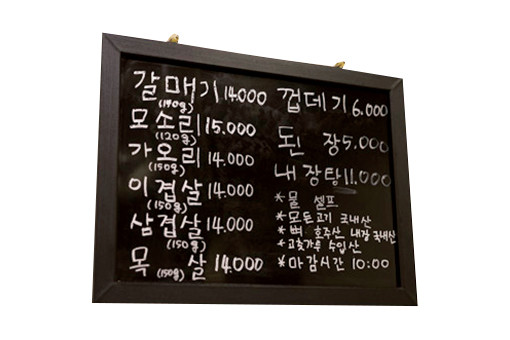 갈매기 14.000
(140g)
모소리 15.000
(120g)
가오리 14.000
(150g)
이겹살 14.000
(150g)
삼겹살 14.000
(150g)
목 살 14.000
(150g)
껍데기 6.000
된 장 5.000
내장탕 11.000
*물 셀프
*모든고기 국내산
*뼈 호주산 내장 국내산
*고춧가루 수입산
*마감시간 10:00